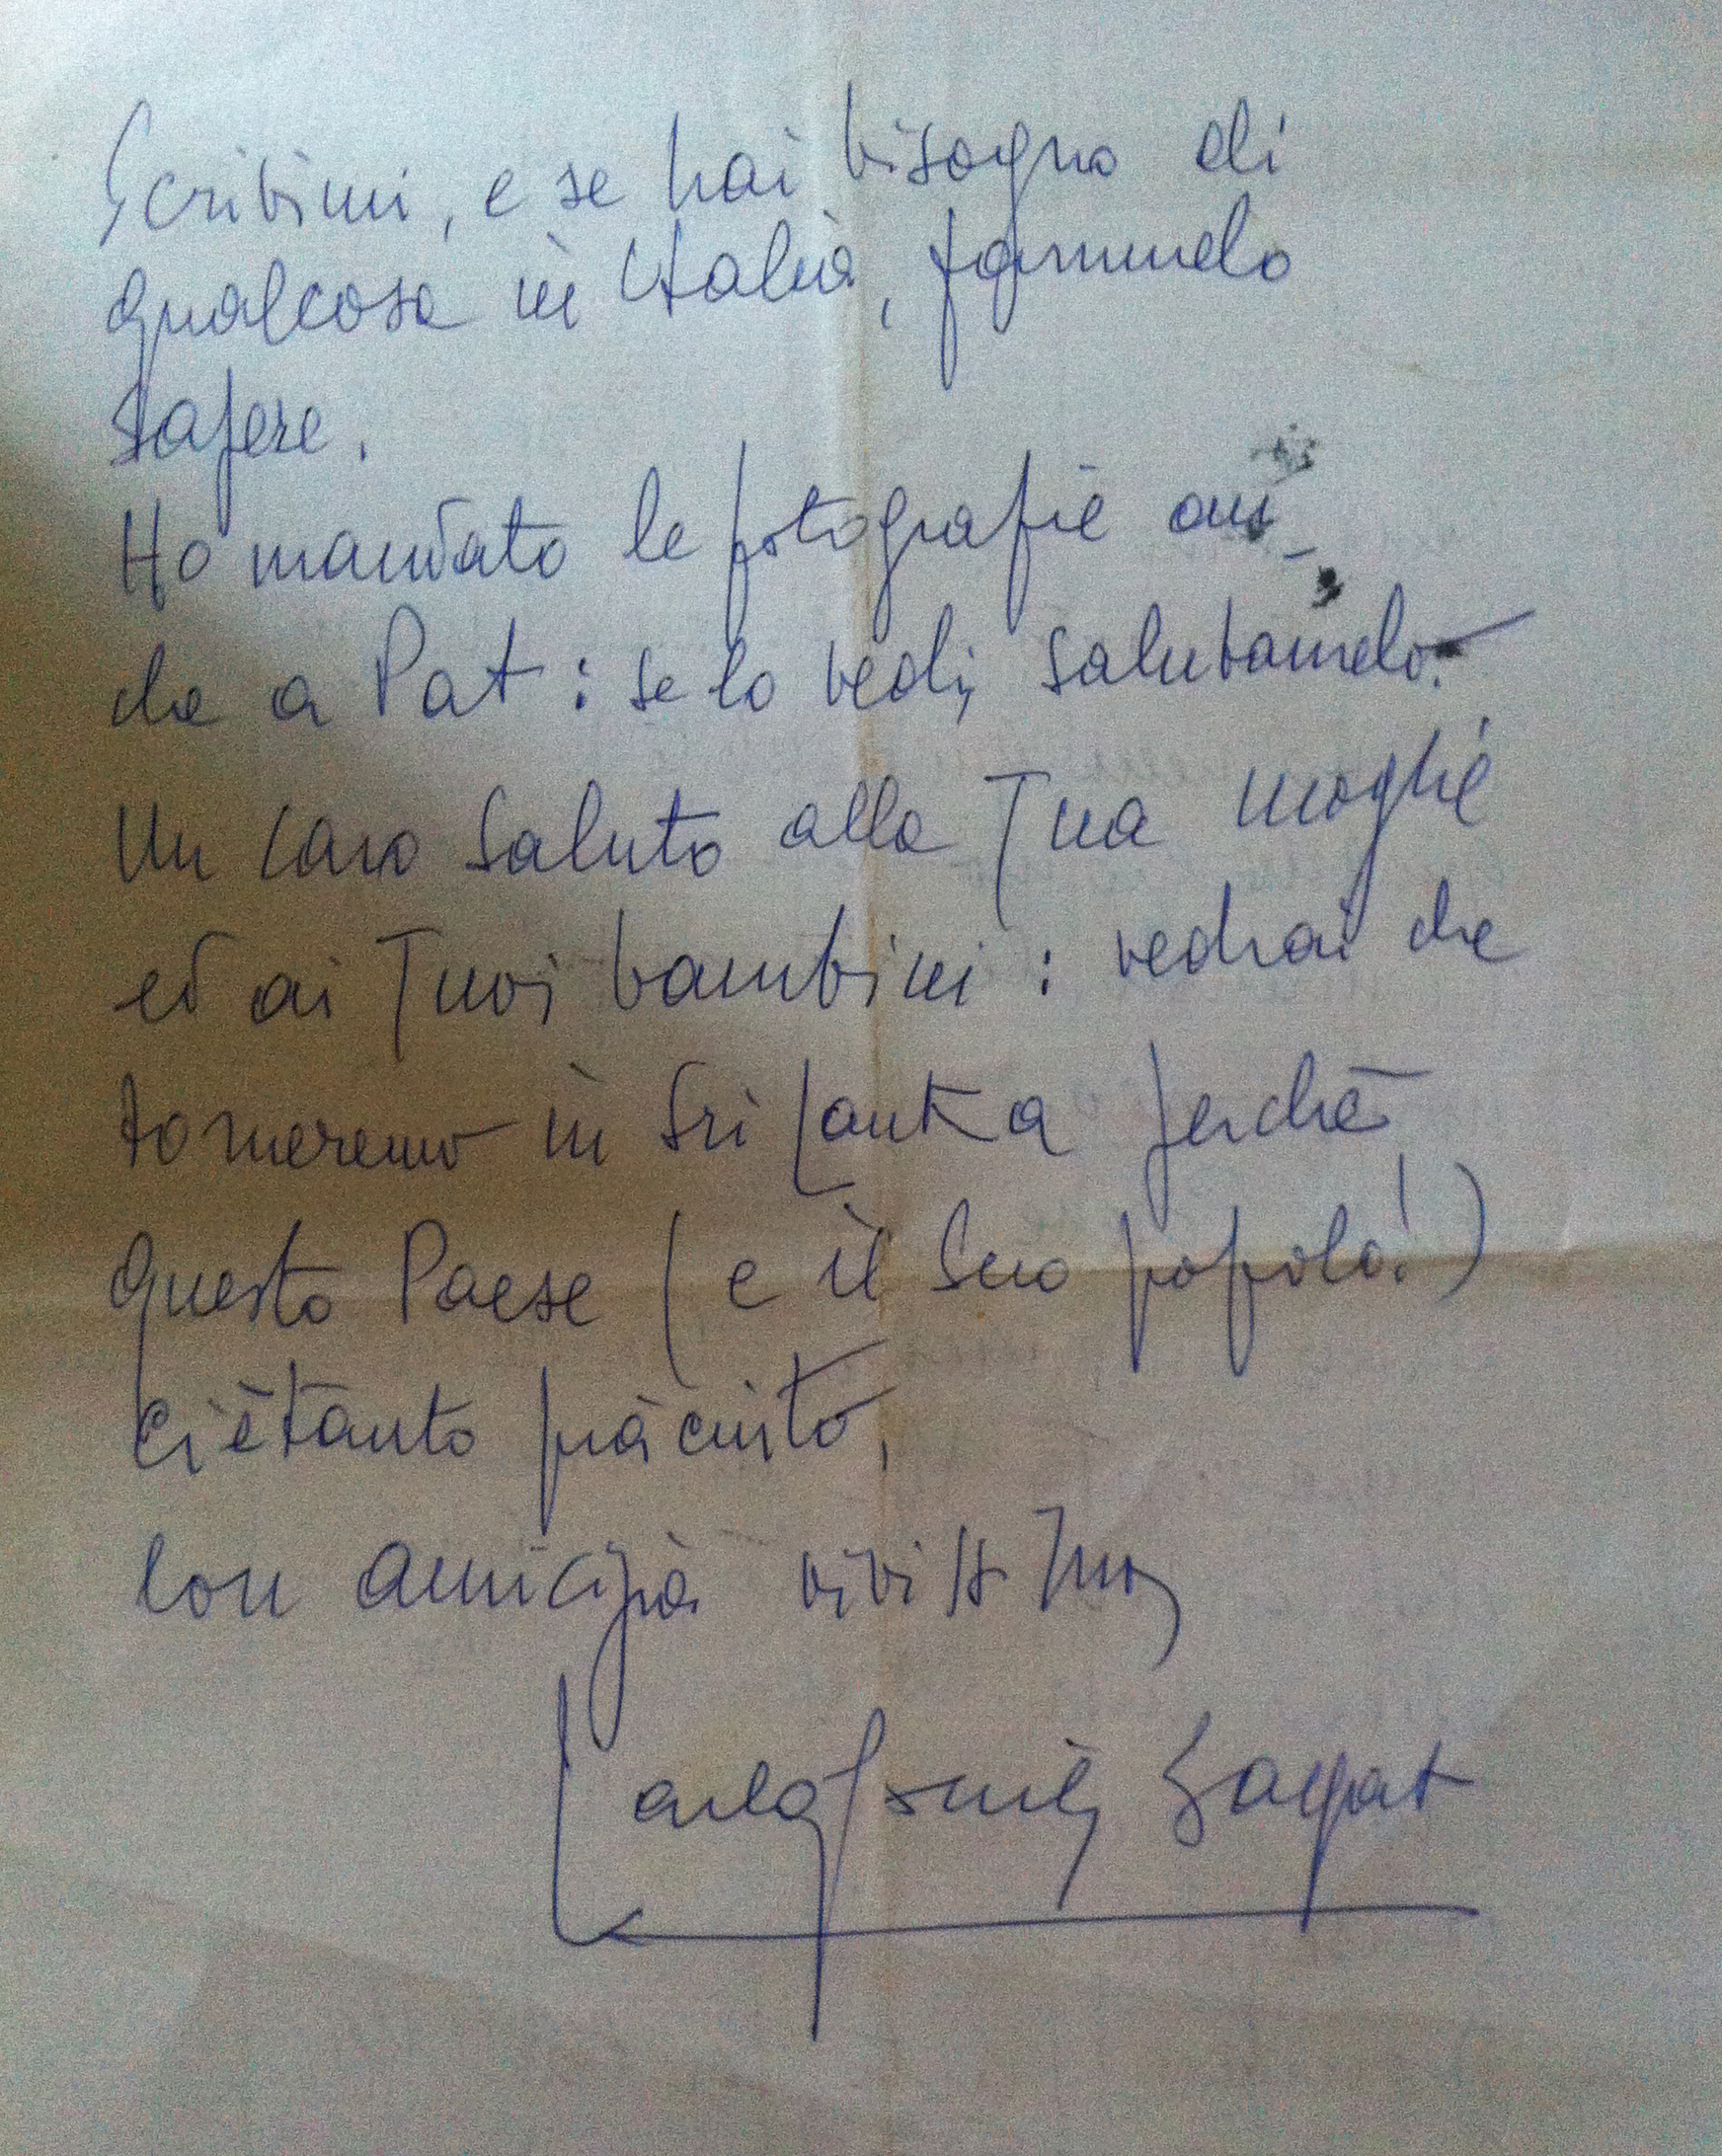 Scrivimi, e se hai bisogno di
qualcosa in Italia, fammelo
sapere.
Ho mandato le fotografie an-
che a Pat: se lo vedi, salutamelo.
Un caro saluto alla Tua moglie
ed ai Tuoi bambini: vedrai che
torneremo in Sri Lanka perché
questo Paese (e il Suo popolo!)
ci è tanto piaciuto,
Con amicizia vivissima